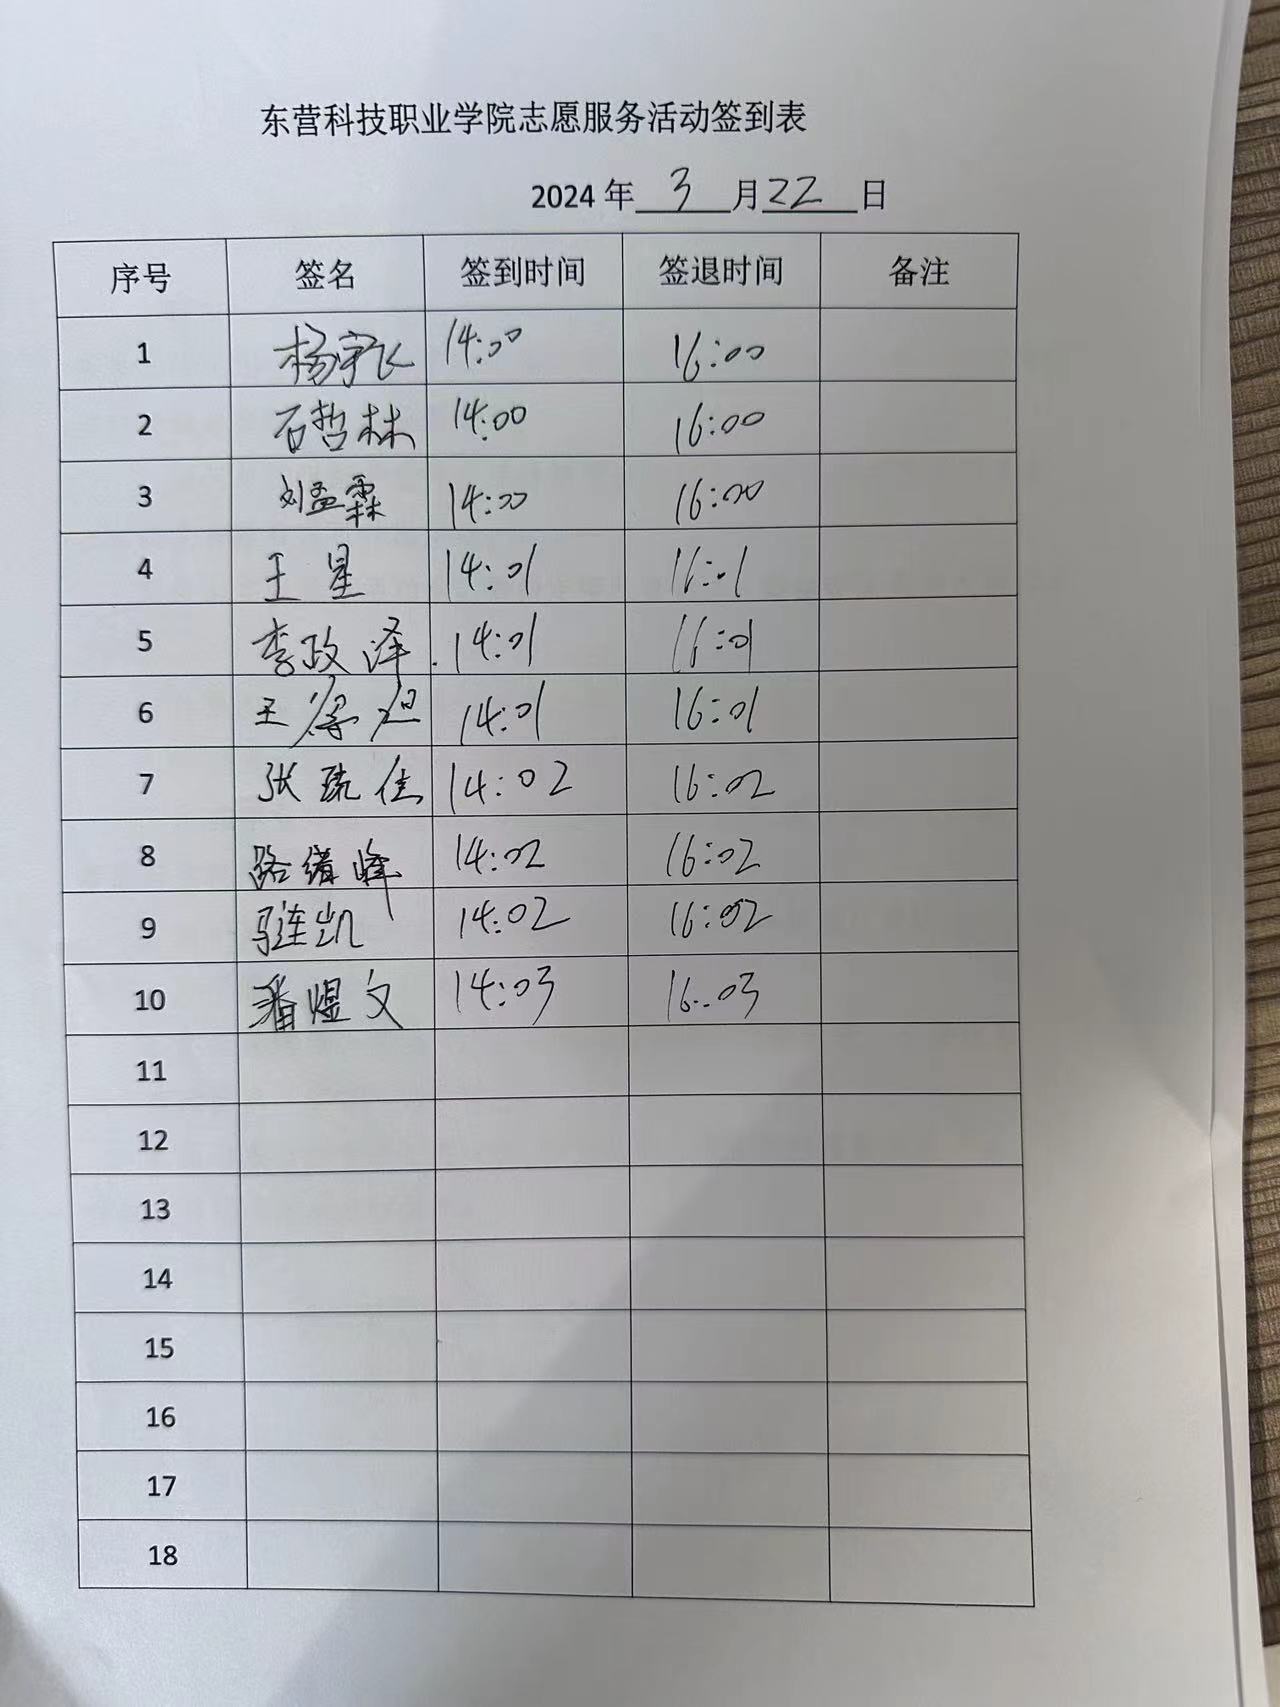 东营科技职业学院志愿服务活动签到表
2024年 3 月 22 日
序号 签名 签到时间 签退时间 备注
1 杨宇飞 14:00 16:00
2 石哲林 14:00 16:00
3 刘孟霖 14:00 16:00
4 王星 14:01 16:01
5 李政泽 14:01 16:01
6 王 14:01 16:01
7 张琉佳 14:02 16:02
8 路绪峰 14:02 16:02
9 凯 14:02 16:02
10 潘煜文 14:03 16:03
11
12
13
14
15
16
17
18